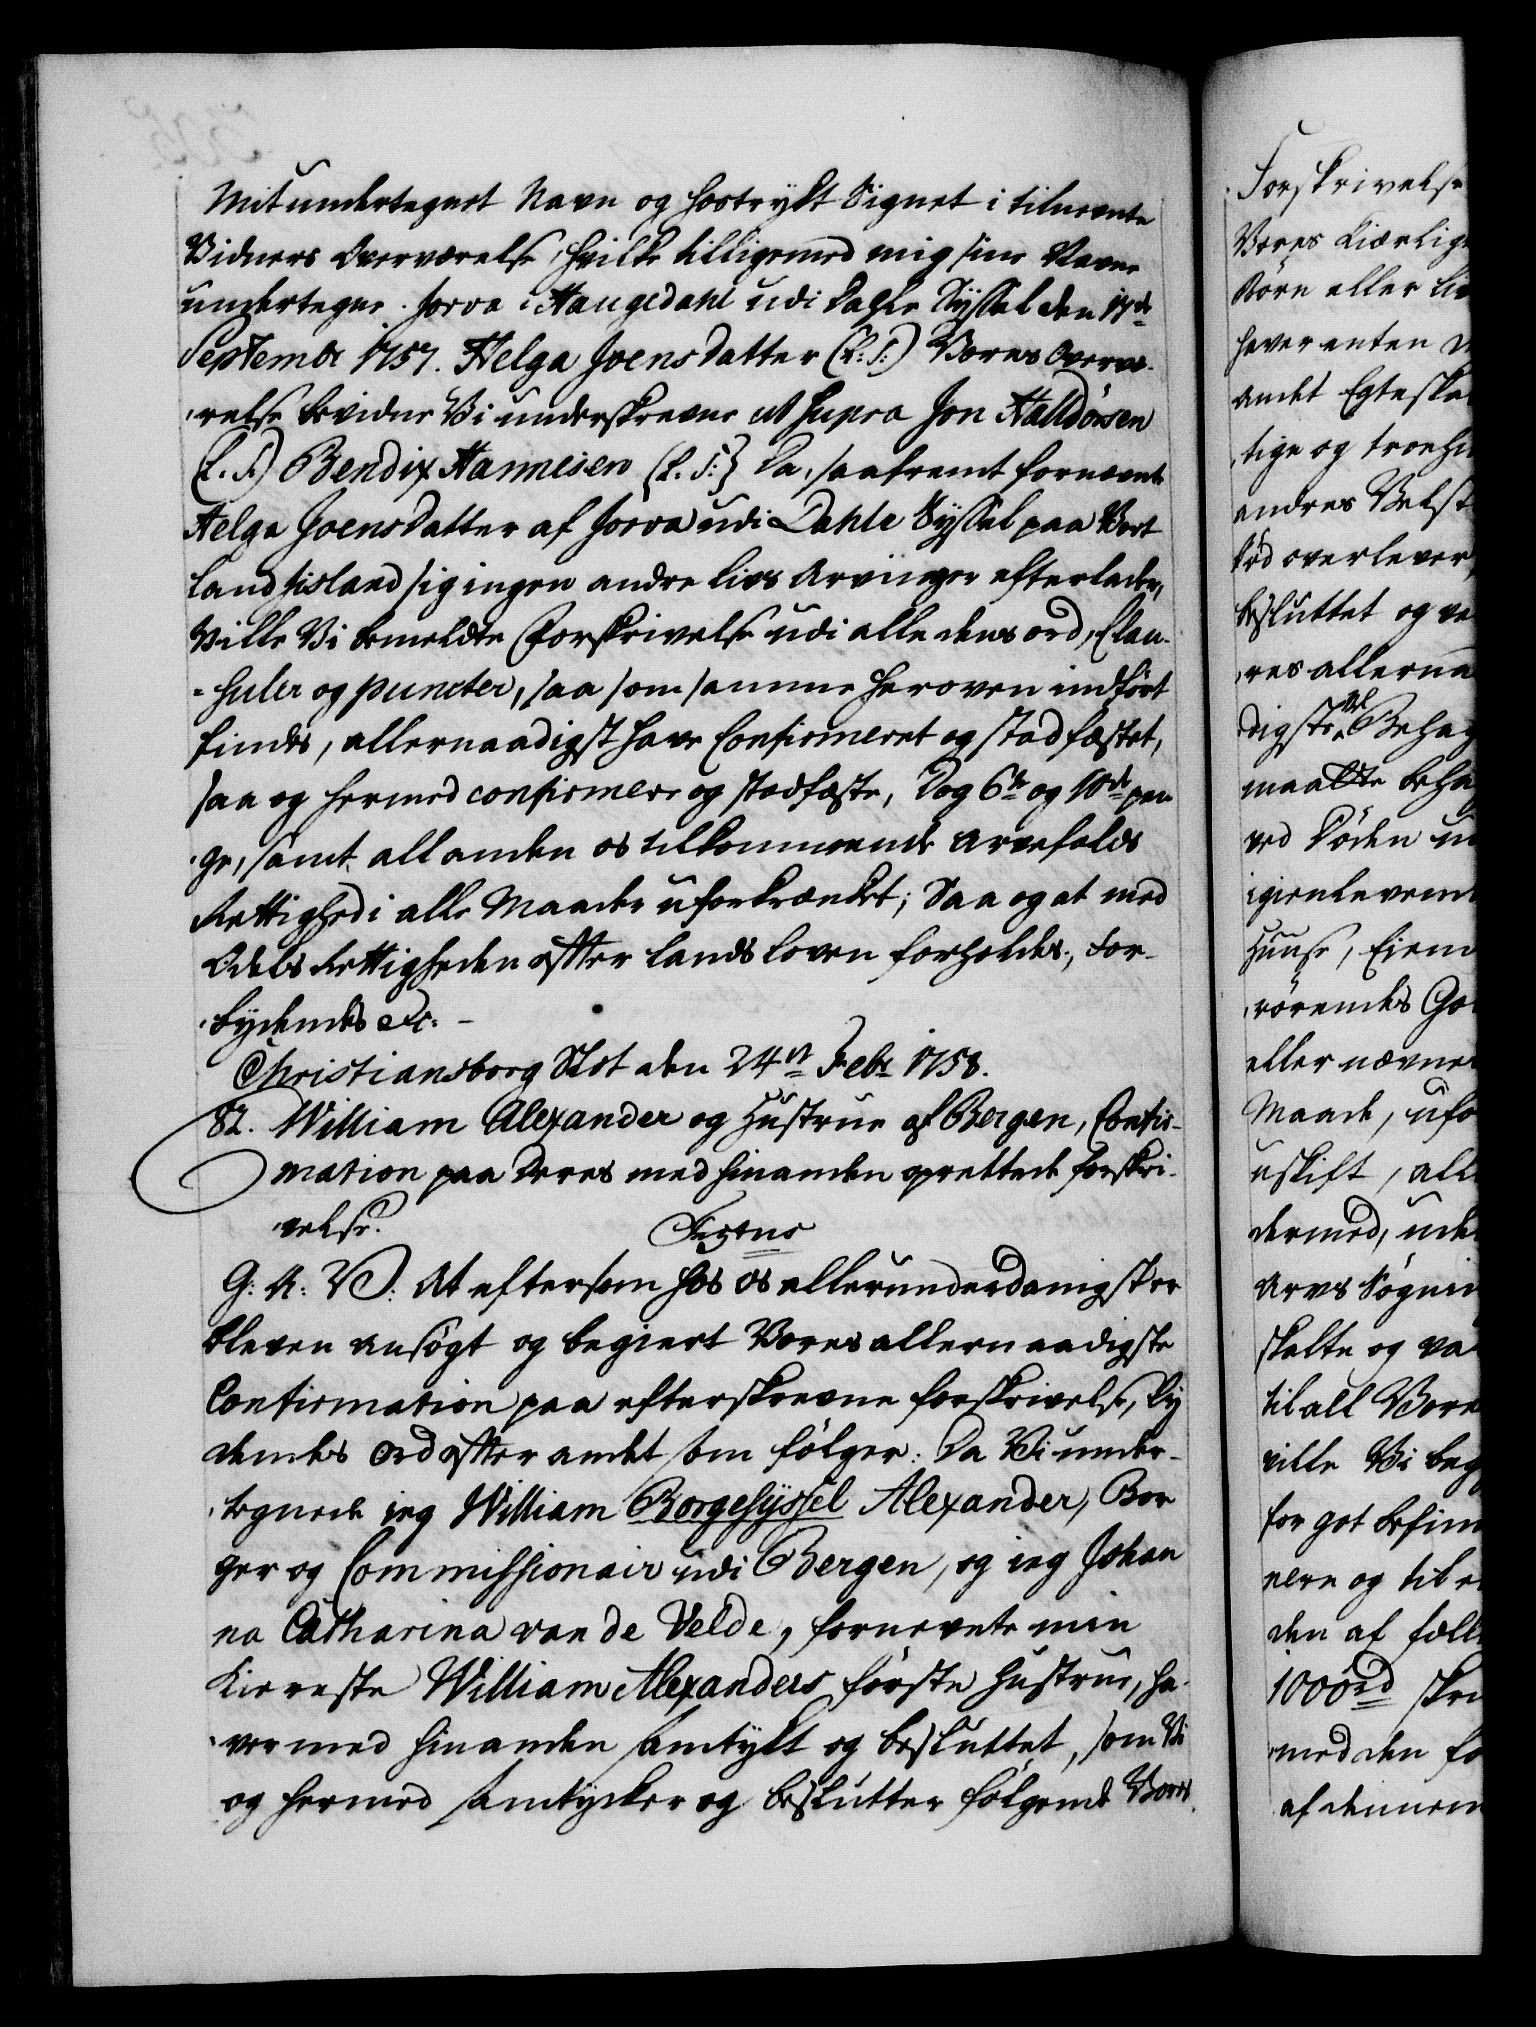 Mit undertegnet Navn og hostrykt Signet i tilnevnte
Vidners Overværelse, hvilke tilligemed mig sine Navne
undertegne. Jorva i Haugedahl udi Dahle Syssel den 17de
Septembr 1757. Helga Joensdatter (L: S:) Vores Overvæ-
relse bevidner Vi underskrevne ut supra Jon Halldórsen
(L. S.) Bendix Hannesen (L. S:) Da, saafremt fornævnte
Helga Joensdatter af Jorva udi Dahle Syssel paa Vort
Land Island sig ingen andre Livs Arvinger efterlader,
Ville Vi bemeldte Forskrivelse udi alle dens ord, Clau-
-suler og puncter, saa som samme heroven indført
findes, allernaadigst have Confirmeret og stadfæstet,
saa og hermed confirmere og stadfæste, Dog 6te og 10de pen
ge, samt all anden os tilkommende arvefalds
Rettighed i alle Maader uforkrænket; Saa og at med
Odels Rettigheden efter Lands Loven forholdes, For-
bydendes etc: -
Christiansborg Slot den 24de Febr 1758.
82. William Alexander og Hustrue af Bergen, Confir-
mation paa deres med hinanden oprettede forskri-
velse.
G: A: V: At eftersom hos os allerunderdanigst er
bleven ansøgt og begiert Vores allernaadigste
Confirmation paa efterskrevne forskrivelse, Ly
dendes ord efter andet som følger: Da Vi under-
tegnede ieg William Borgesyssel Alexander, Bor
ger og Commissionair udi Bergen, og ieg Johan
na Catharina van de Velde, fornevnte min
Kiereste William Alexanders første Hustrue, ha-
ver med hinanden samtykt og besluttet, som Vi
og hermed samtycker og beslutter følgende Vores
Forskrivelse
Vores Kiærlig
Børn eller Liv
haver enten
andet Egteska
tige og troeh
andres Velst
død overlever,
besluttet og ve
res allerna
digste vel Behag
maatte beha
ved Døden u
igienlevend
Huuse, Eiend
rørendes Go
eller nævne
Maade, ufo
uskift, all
dermed, ude
Arvs Søgni
skalte og va
til all Vore
ville Vi beg
for got befin
nere og til e
den af fæll
1000rd skri
med den fo
af dennem